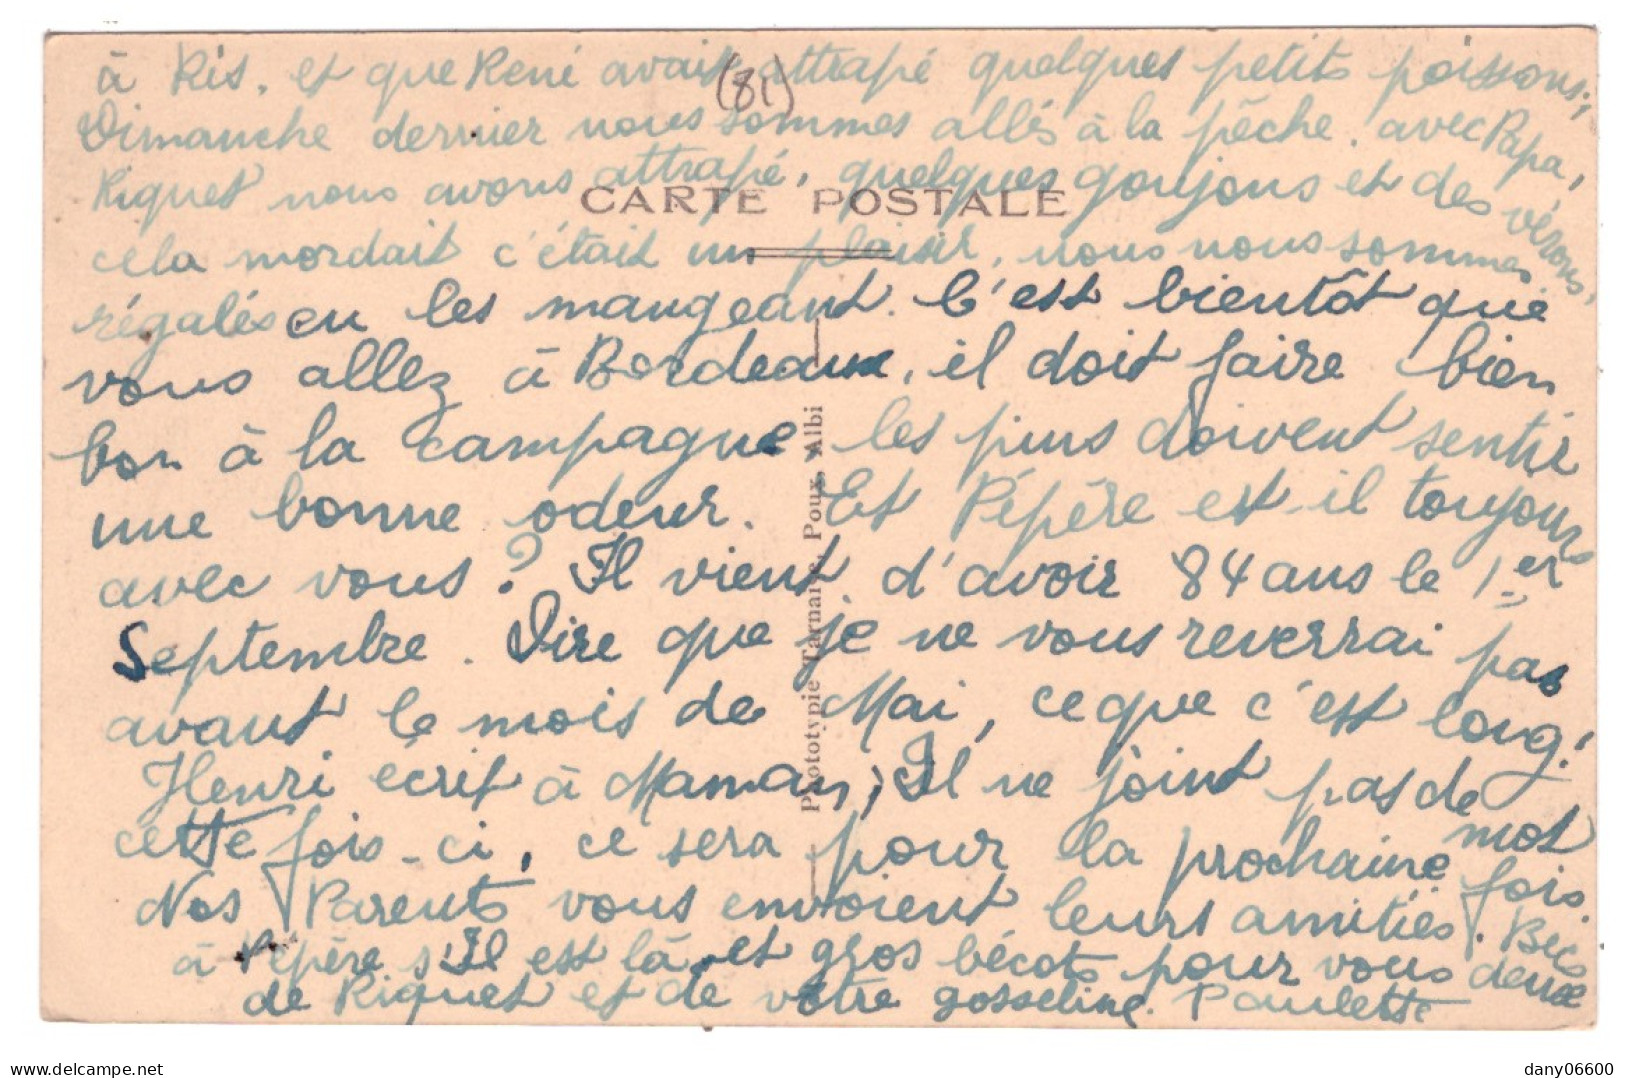 à Ris, et que René avait attrapé quelques petits poissons;
(81)
Dimanche dernier nous sommes allés à la pêche avec Papa,
Riquet nous avons attrapé, quelques goujons et des vérons,
CARTE POSTALE
cela mordait c'était un plaisir, nous nous sommes
régalés en les mangeant. C'est bientôt que
vous allez à Bordeaux, il doit faire bien
bon à la campagne les pins doivent sentir
une bonne odeur. Et Pépère est-il toujours
avec vous? Il vient d'avoir 84 ans le 1er
Septembre. Dire que je ne vous reverrai pas
avant le mois de Mai, ce que c'est long!
Henri écrit à Maman, Il ne joint pas de mot
cette fois-ci, ce sera pour la prochaine fois.
Nos Parents vous envoient leurs amitiés. Becs
à Pépère s'Il est là et gros bécots pour vous deux
de Riquet et de votre gosseline. Paulette
Phototypie Tarnaise, Poux, Albi
delcampe.net
dany06600